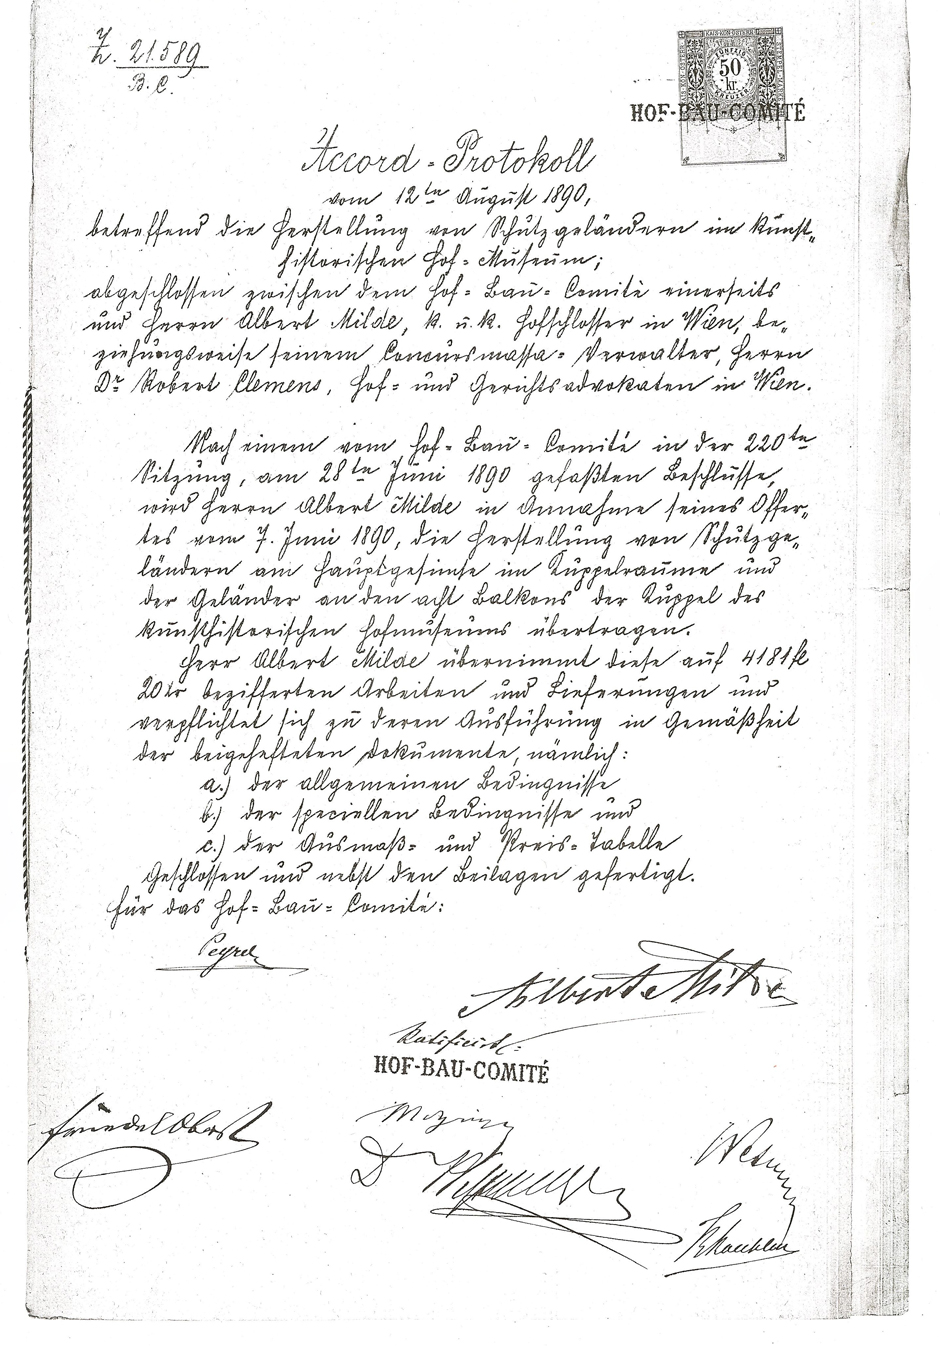 Z. 21.589
B. C.
FÜNFZIG
50
kr.
KREUZER
HOF-BAU-COMITÉ
Accord-Protokoll
vom 12ten August 1890,
betreffend die Herstellung von Schutzgeländern im kunst-
historischen Hof-Museum;
abgeschlossen zwischen dem Hof-Bau-Comité einerseits
und Herrn Albert Milde, k. u. k. Hofschlosser in Wien, be-
ziehungsweise seinem Concursmassa-Verwalter, Herrn
Dr Robert Clemens, Hof- und Gerichtsadvokaten in Wien.
Nach einem vom Hof-Bau-Comité in der 220ten
Sitzung, am 28ten Juni 1890 gefaßten Beschlusse,
wird Herrn Albert Milde in Annahme seines Offer-
tes vom 7. Juni 1890, die Herstellung von Schutzge-
ländern am Hauptgesimse im Kuppelraume und
der Geländer an den acht Balkons der Kuppel des
kunsthistorischen Hofmuseums übertragen.
Herr Albert Milde übernimmt diese auf 4181 fl
20 kr bezifferten Arbeiten und Lieferungen und
verpflichtet sich zu deren Ausführung in Gemäßheit
der beigehefteten Dokumente, nämlich:
a.) der allgemeinen Bedingnisse
b.) der speciellen Bedingnisse und
c.) der Ausmaß- und Preis-Tabelle
Geschlossen und nebst den Beilagen gefertigt.
Für das Hof-Bau-Comité:
Albert Milde
Ratificirt:
HOF-BAU-COMITÉ
Friedel Oberst
Dr